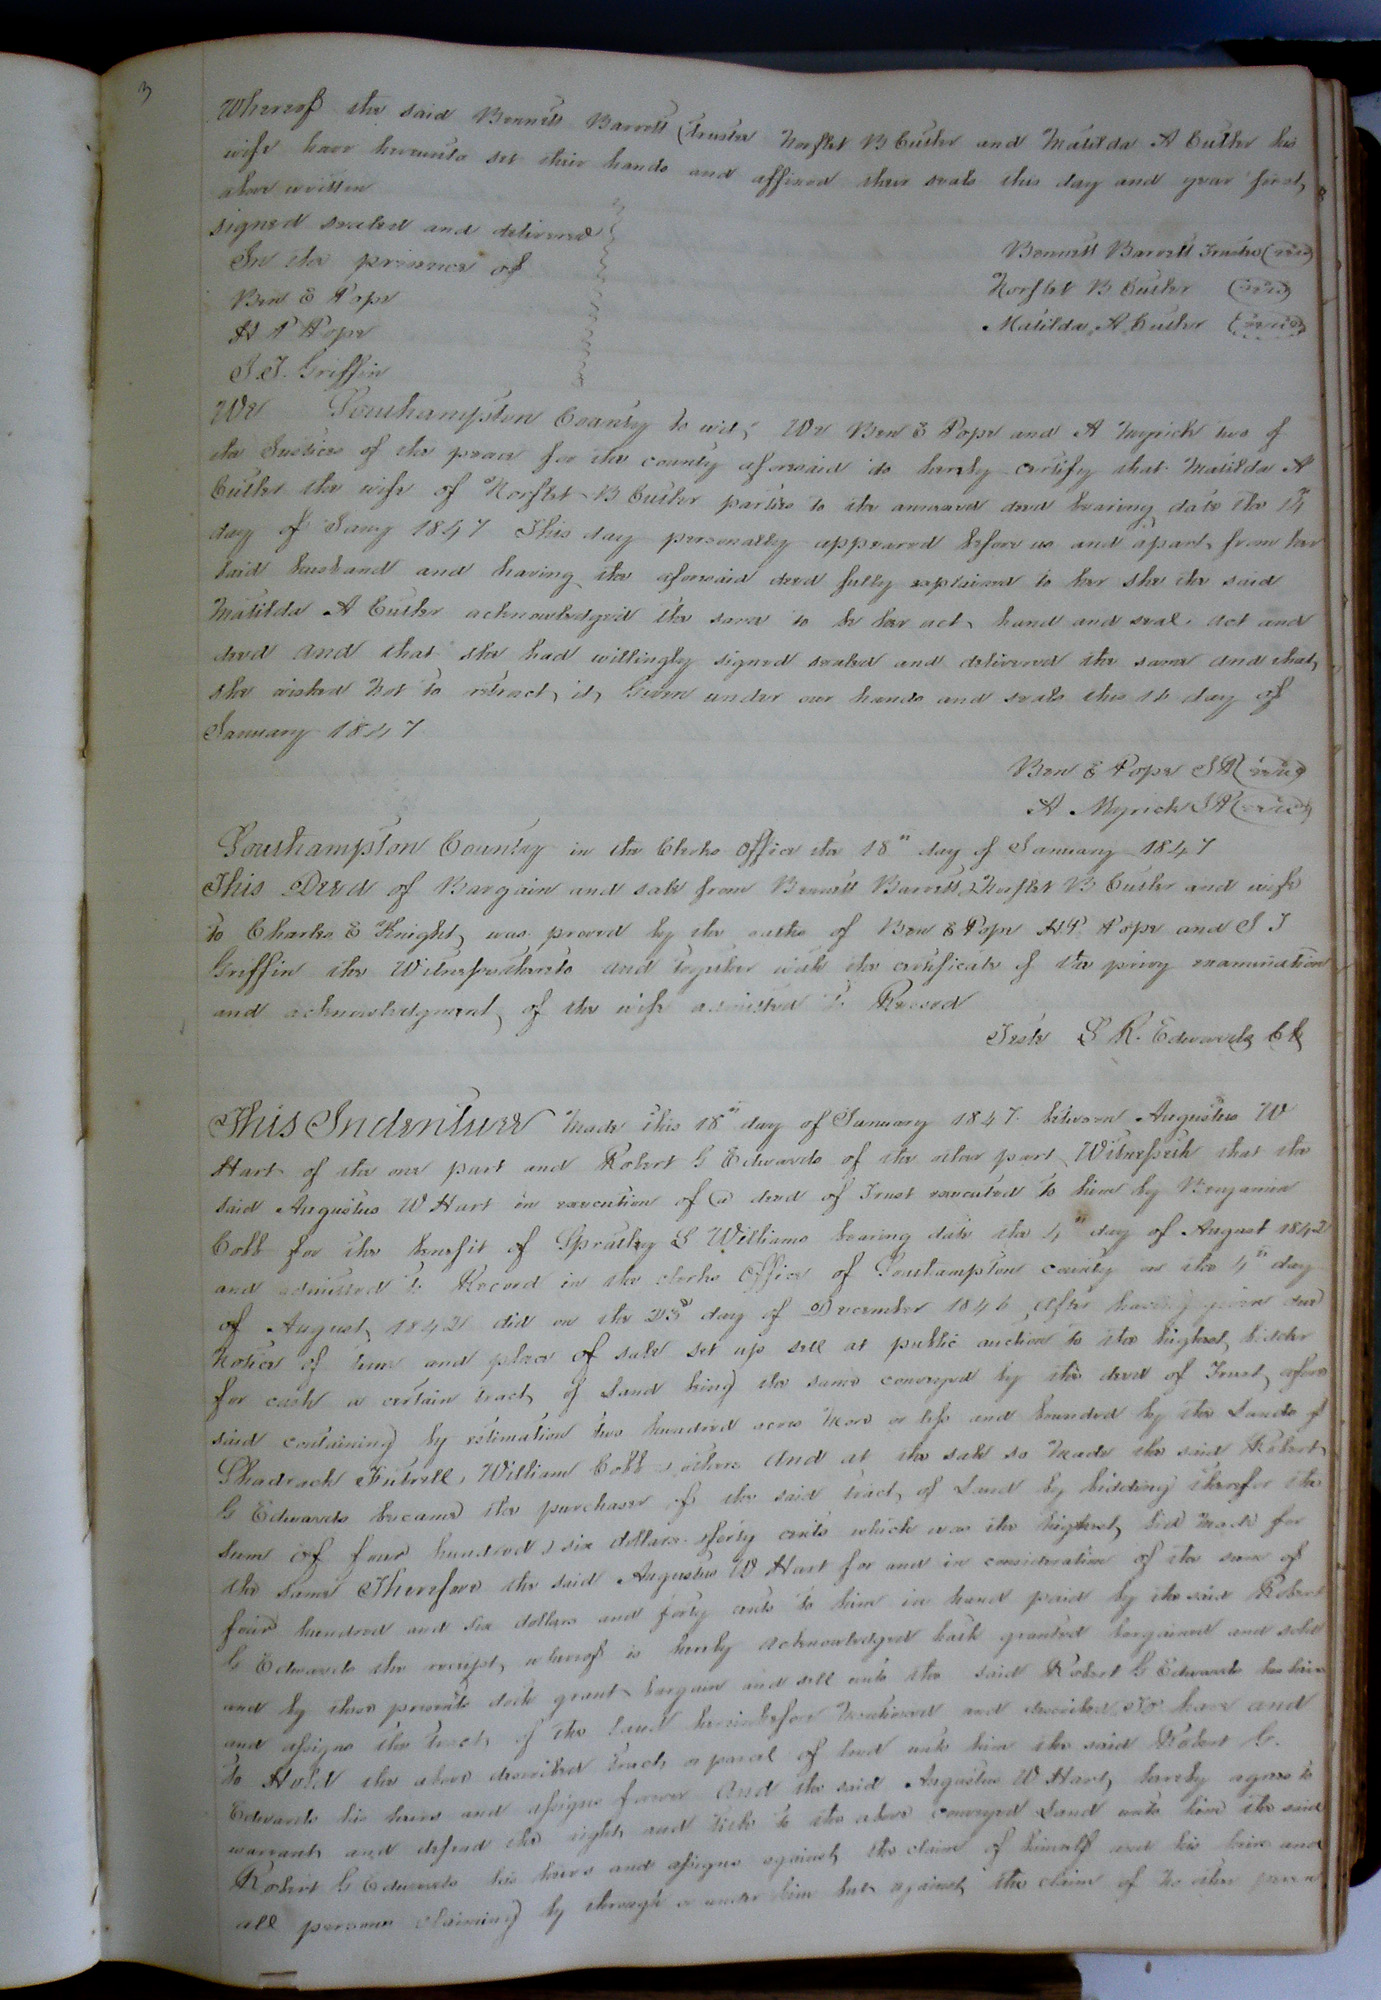 3
Whereof the said Bennett Barrett (Trustee Norflet B Cutler and Matilda A Cutler his
wife have hereunto set their hands and affixed their seals this day and year first
above written
signed sealed and delivered
In the presence of
Ben E Pope
H P Pope
J. J. Griffin
Bennett Barrett Trustee (seal)
Norflet B Cutler (seal)
Matilda A Cutler (seal)
We Southampton County to wit; We Ben E Pope and A Myrick two of
the Justices of the peace for the county aforesaid do hereby certify that Matilda A
Cutler the wife of Norflet B Cutler parties to the annexed deed bearing date the 14th
day of Jany 1847 This day personally appeared before us and apart from her
said husband and having the aforesaid deed fully explained to her she the said
Matilda A Cutler acknowledged the same to be her act hand and seal act and
deed and that she had willingly signed sealed and delivered the same and that
she wished Not to retract it, Given under our hands and seals this 16 day of
January 1847
Ben E Pope JP (seal)
A Myrick JP (seal)
Southampton County in the Clerks Office the 18" day of January 1847
This Deed of Bargain and sale from Bennett Barrett, Norflet B Cutler and wife
to Charles E Knight was proved by the oaths of Ben E Pope H P Pope and J J
Griffin the Witnesses thereto and together with the certificate of the privy examination
and acknowledgment of the wife admitted to Record
Teste L R. Edwards Clk
This Indenture Made this 18" day of January 1847 between Augustus W
Hart of the one part and Robert G Edwards of the other part Witnesseth that the
said Augustus W Hart in execution of a deed of Trust executed to him by Benjamin
Cobb for the benefit of Spratley S Williams bearing date the 4" day of August 1842
and admitted to Record in the clerks Office of Southampton county on the 4" day
of August 1842 did on the 23d day of December 1846 after having given due
Notice of time and place of sale set up sell at public auction to the highest bidder
for cash a certain tract of Land being the same conveyed by the deed of Trust afore
said containing by estimation two hundred acres More or less and bounded by the Lands of
Shadrach Futrell, William Cobb & others And at the sale so Made the said Robert
G Edwards became the purchaser of the said tract of Land by bidding therefor the
sum of four hundred & six dollars & forty cents which was the highest bid Made for
the same Therefore the said Augustus W Hart for and in consideration of the sum of
four hundred and six dollars and forty cents to him in hand paid by the said Robert
G Edwards the receipt whereof is hereby acknowledged hath granted bargained and sold
and by these presents doth grant bargain and sell unto the said Robert G Edwards his heirs
and assigns the tract of the Land hereinbefore Mentioned and described To have and
to Hold the above described tract or parcel of land unto him the said Robert G.
Edwards his heirs and assigns forever And the said Augustus W Hart, hereby agrees to
warrant and defend the right and title to the above conveyed Land unto him the said
Robert G Edwards his heirs and assigns against the claim of himself and his heirs and
all persons claiming by through or under him but against the claim of No other person